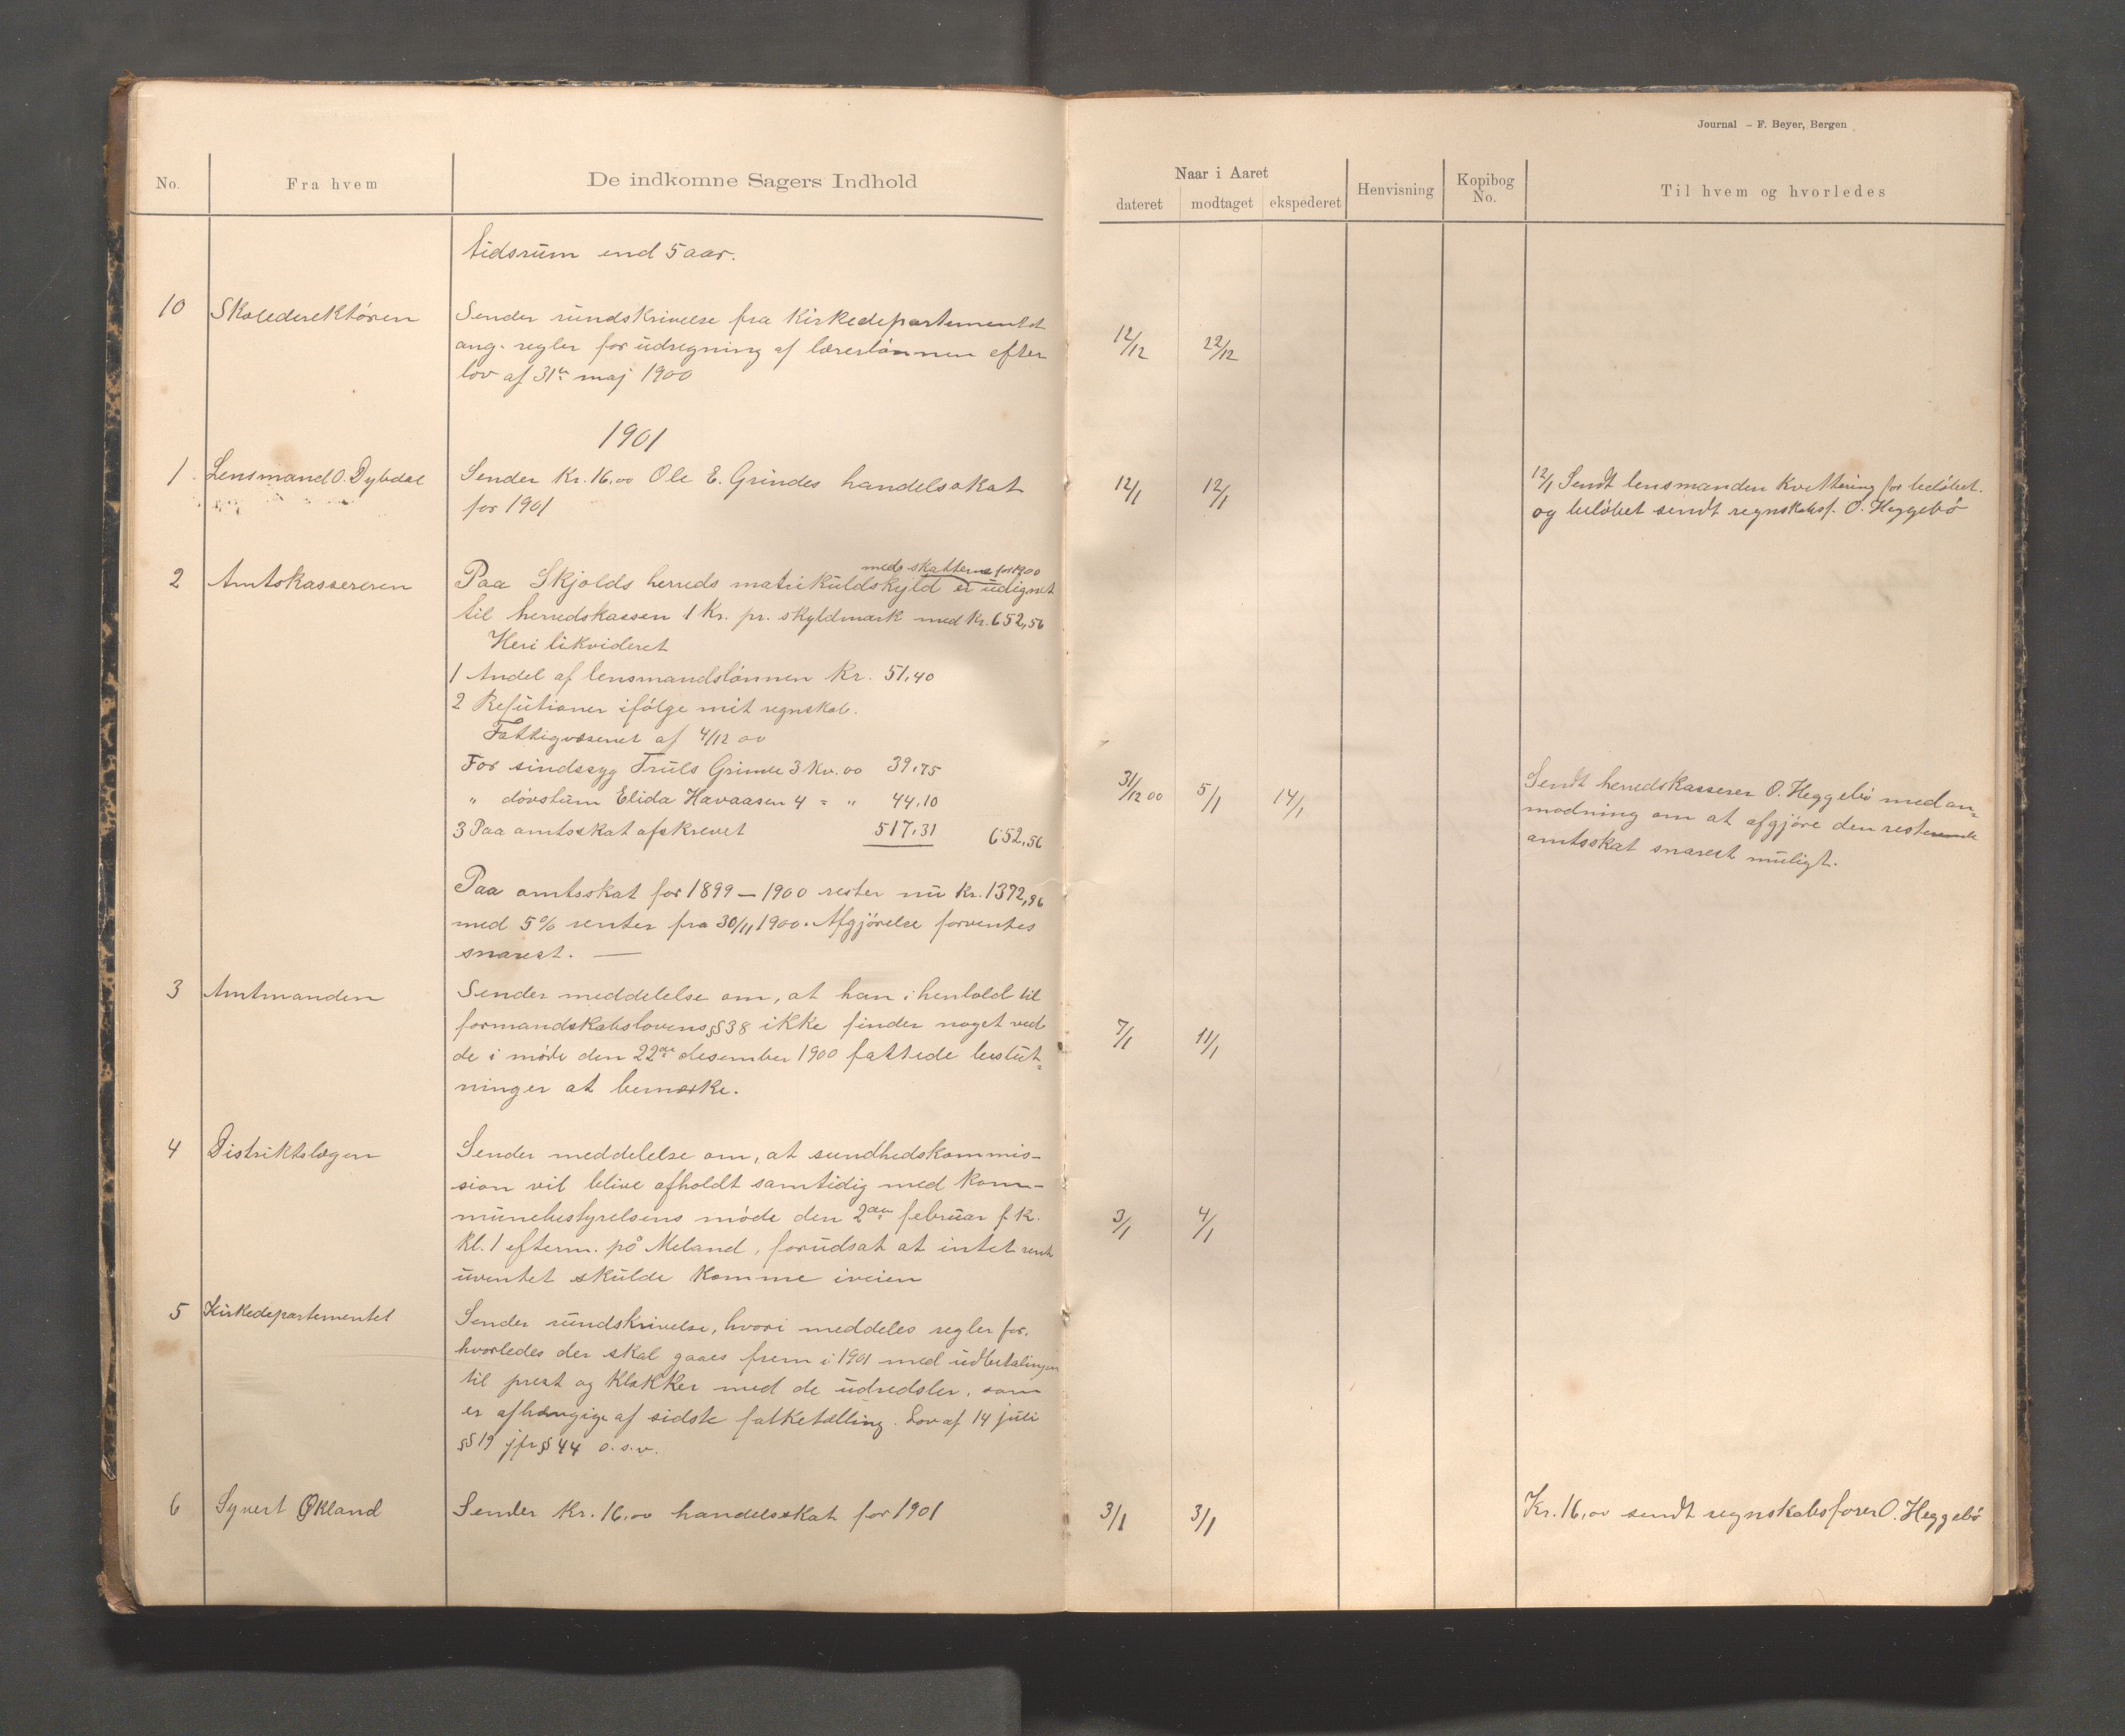 Journal – F. Beyer, Bergen
No.
Fra hvem
De indkomne Sagers Indhold
Naar i Aaret
dateret
modtaget
ekspederet
Henvisning
Kopibog
No.
Til hvem og hvorledes
tidsrum end 5 aar.
10
Skoledirektören
Sender rundskrivelse fra Kirkedepartementet
ang. regler for udregning af lærerlönnen efter
lov af 31te maj 1900
12/12
22/12
1901
1
Lensmand O. Dybdal
Sender Kr. 16,00 Ole E. Grindes handelsskat
for 1901
12/1
12/1
12/1 Sendt lensmanden kvittering for belöbet.
og belöbet sendt regnskabsf. O. Heggebö
2
Amtskassereren
med skatterne for 1900
Paa Skjolds herreds matrikulskyld er udlignet
til herredskassen 1 Kr. pr. skyldmark med Kr. 652,56
Heri likvideret
1 Andel af lensmandslönnen Kr. 51,40
2 Refutioner ifölge mit regnskab.
Fattigvæsenet af 4/12 00
For sindssyg Truls Grinde 3 Kv. 00 39,75
" dövstum Elida Havaasen 4 = " 44,10
3 Paa amtsskat afskrevet 517,31 652,56
31/12 00
5/1
14/1
Sendt herredskasserer O. Heggebö med an=
modning om at afgjöre den resterende
amtsskat snarest muligt.
Paa amtsskat for 1899 – 1900 rester nu Kr. 1372,96
med 5 % renter fra 30/11 1900. Afgjörelse forventes
snarest. —
3
Amtmanden
Sender meddelelse om, at han i henhold til
formandskabslovens § 38 ikke finder noget ved
de i möde den 22de desember 1900 fattede beslut=
ninger at bemærke.
7/1
11/1
4
Distriktslægen
Sender meddelelse om, at sundhedskommis-
sion vil blive afholdt samtidig med kom-
munebestyrelsens möde den 2den februar f. k.
kl. 1 efterm. på Meland, forudsat at intet rent
uventet skulde komme iveien
3/1
4/1
5
Kirkedepartementet
Sender rundskrivelse, hvori meddeles regler for,
hvorledes der skal gaaes frem i 1901 med udbetalingen
til prest og klokker med de udredsler, som
er afhængige af sidste folketælling. Lov af 14 juli
§§ 19 jfr § 44 o.s.v.
6
Syvert Ökland
Sender Kr. 16,00 handelsskat for 1901
3/1
3/1
Kr. 16,00 sendt regnskabsförer O. Heggebö